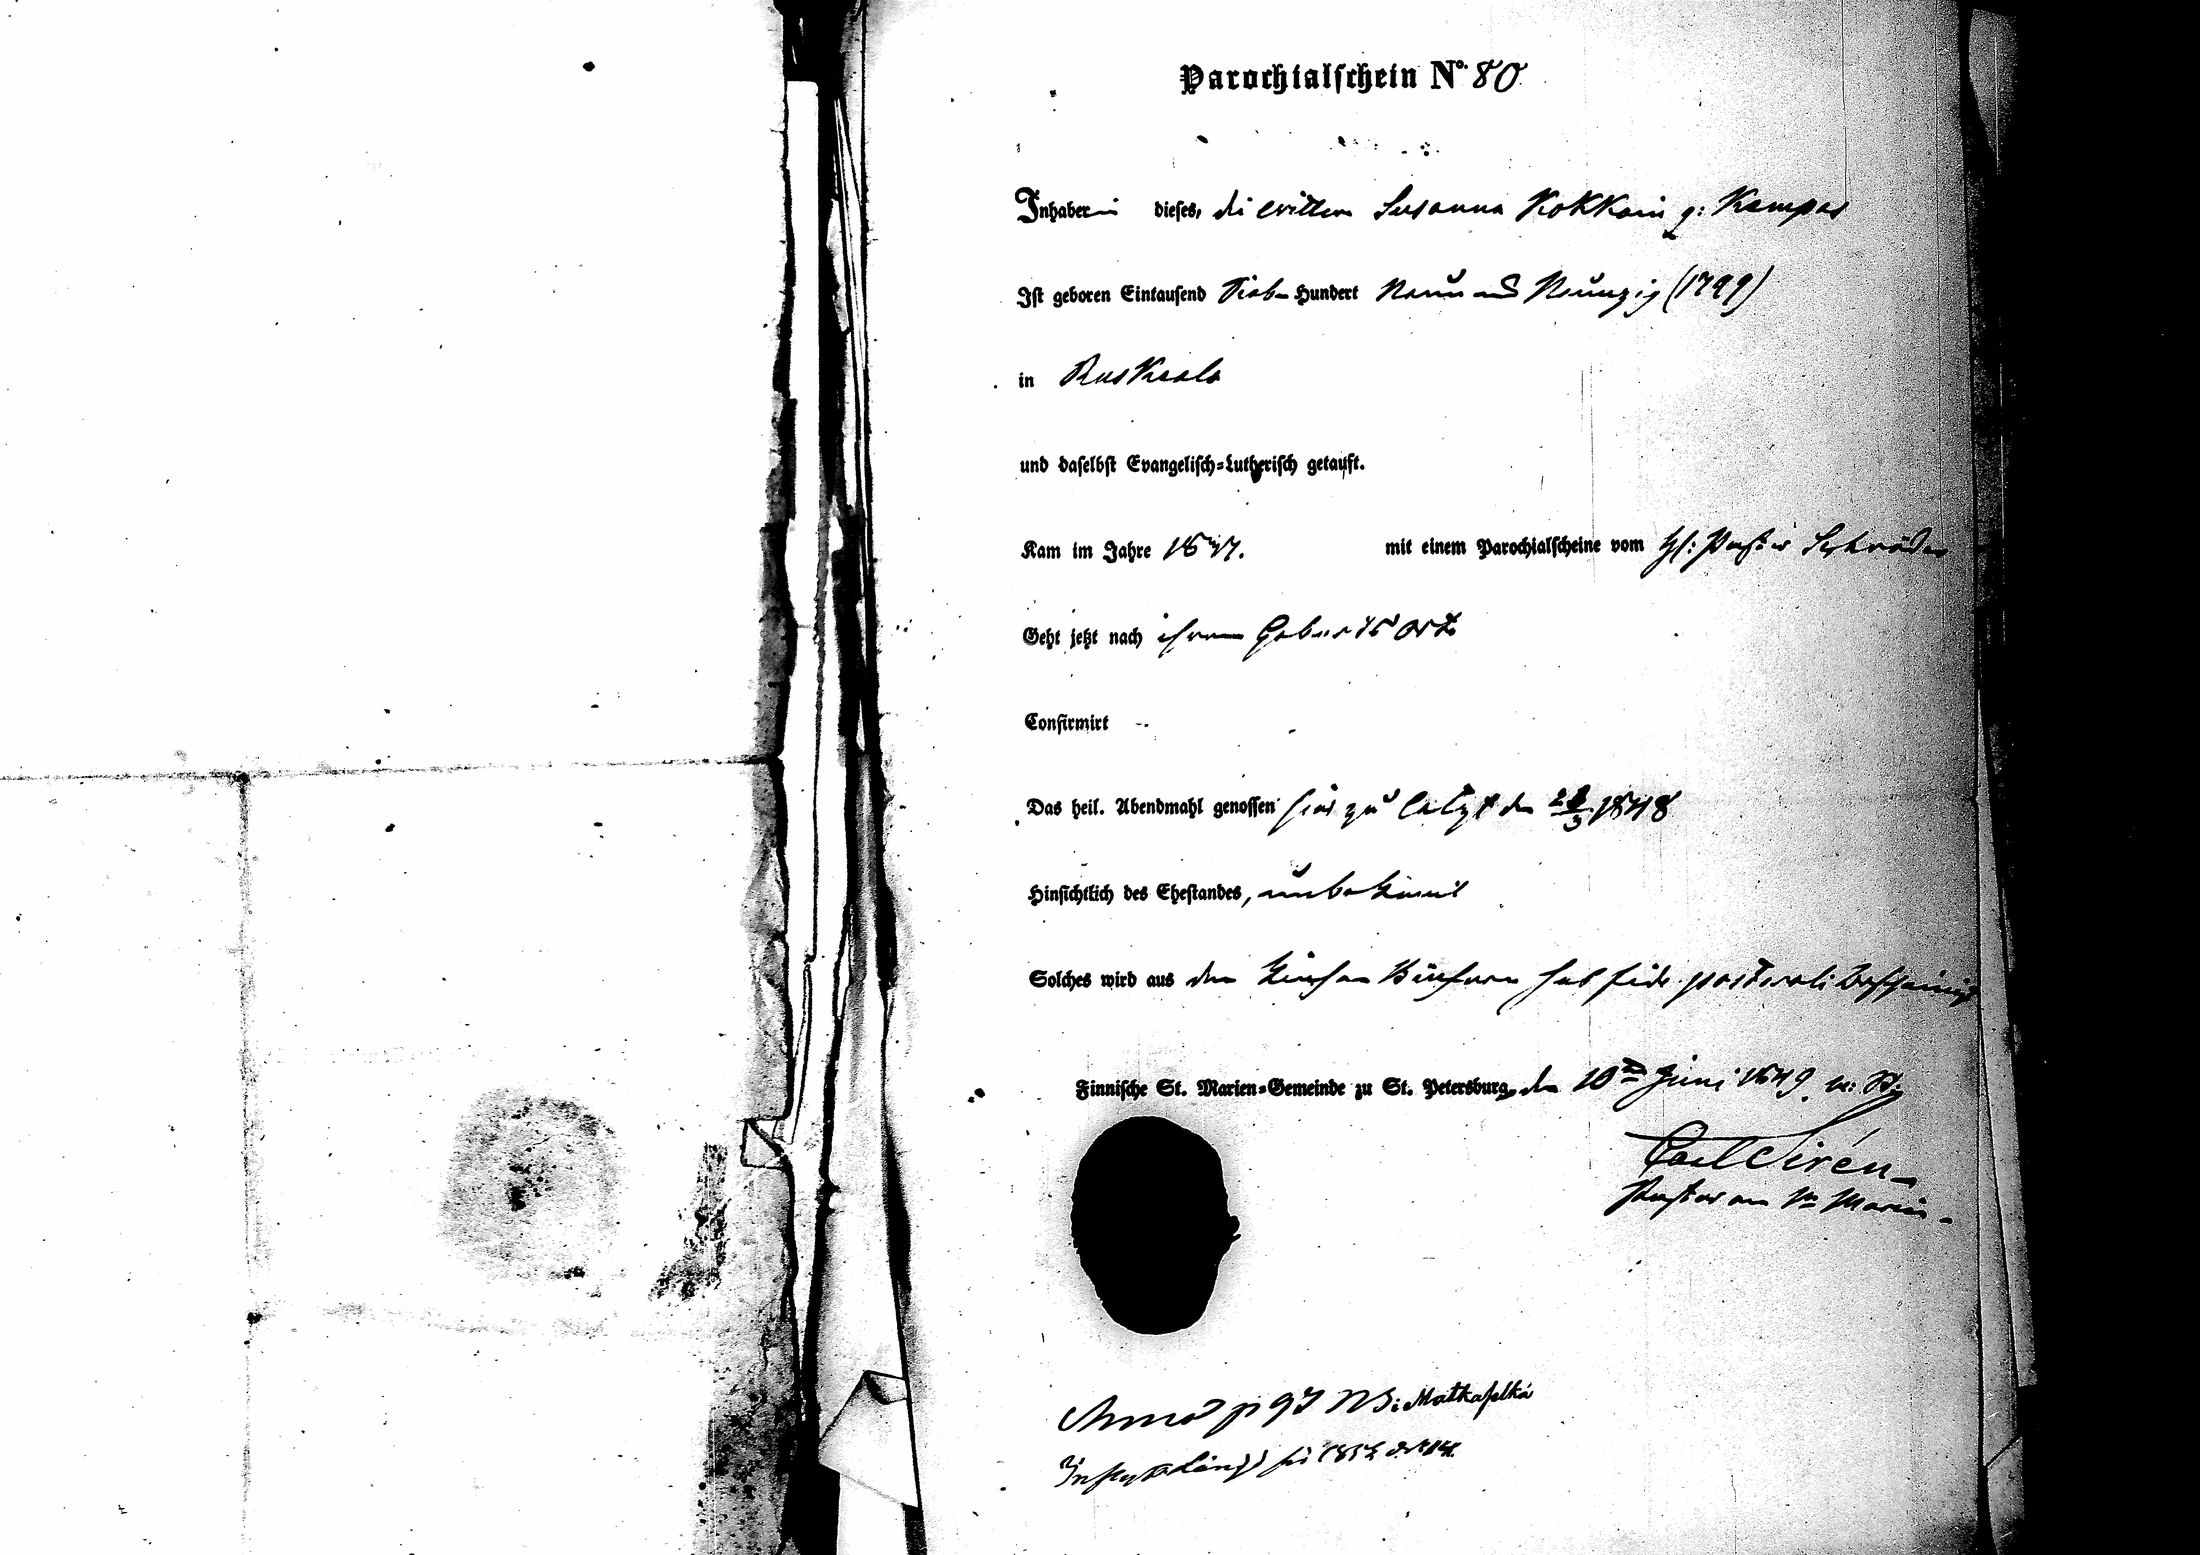 Parochialschein No. 80
Inhaberin dieses, die Wittwe Susanna Kokkoin g: Kempas
Ist geboren Eintausend Sieb- Hundert Neun und Neunzig (1799)
in Ruskeala
und daselbst Evangelisch-Lutherisch getauft.
Kam im Jahre 1847. mit einem Parochialscheine vom H: Pastor Schröder
Geht jetzt nach ihrem Geburtsort
Confirmirt --
Das heil. Abendmahl genossen hier zu letzt den 1848
Hinsichtlich des Ehestandes, unbekannt
Solches wird aus den Kirchen Büchern sub fide pastorali bescheinigt
Finnische St. Marien-Gemeinde zu St. Petersburg, den 10ten Juni 1849
Carl Sirén
Pastor an St Marien
p 97 Matkaselkä